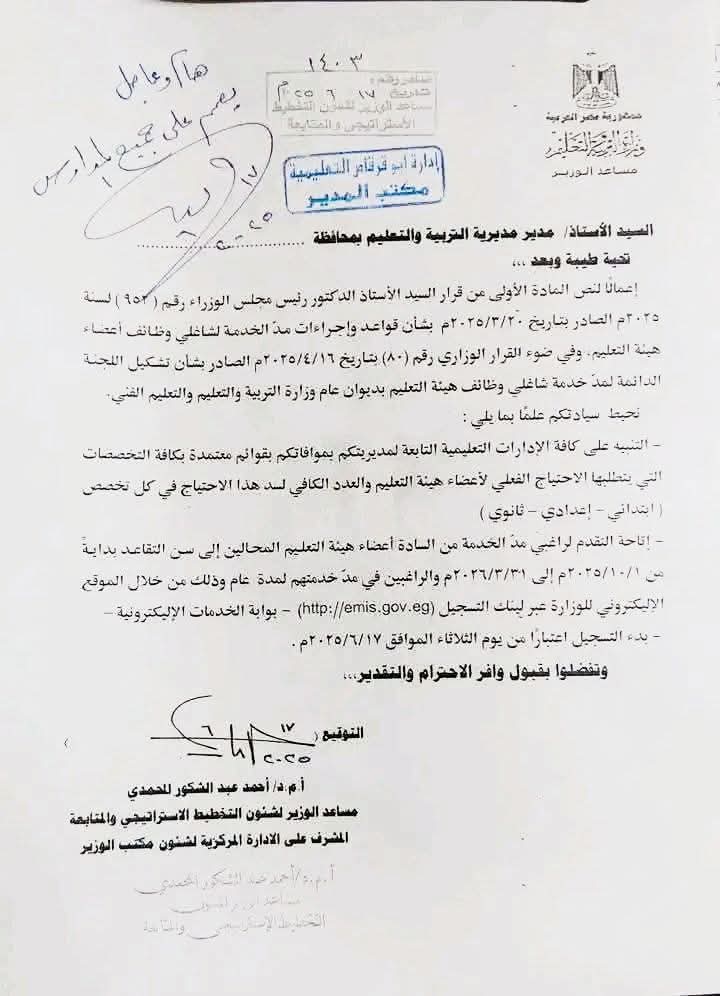 ١٤٠٣
هام وعاجل
يعمم على جميع المدارس
١٧
٦
٢٠٢٥
صادر رقم:
تاريخ ١٧ ٦ ٢٠٢٥م
مساعد الوزير لشئون التخطيط
الاستراتيجي والمتابعة
إدارة أبو قرقاص التعليمية
مكتب المدير
جمهورية مصر العربية
وزارة التربية والتعليم
مساعد الوزير
السيد الأستاذ/ مدير مديرية التربية والتعليم بمحافظة ........................
تحية طيبة وبعد ،،،
إعمالًا لنص المادة الأولى من قرار السيد الأستاذ الدكتور رئيس مجلس الوزراء رقم (٩٥٢) لسنة
٢٠٢٥م الصادر بتاريخ ٢٠٢٥/٣/٢٠م بشأن قواعد وإجراءات مدّ الخدمة لشاغلي وظائف أعضاء
هيئة التعليم، وفي ضوء القرار الوزاري رقم (٨٠) بتاريخ ٢٠٢٥/٤/١٦م الصادر بشأن تشكيل اللجنة
الدائمة لمدّ خدمة شاغلي وظائف هيئة التعليم بديوان عام وزارة التربية والتعليم والتعليم الفني.
نحيط سيادتكم علمًا بما يلي :
– التنبيه على كافة الإدارات التعليمية التابعة لمديريتكم بموافاتكم بقوائم معتمدة بكافة التخصصات
التي يتطلبها الاحتياج الفعلي لأعضاء هيئة التعليم والعدد الكافي لسد هذا الاحتياج في كل تخصص
( ابتدائي – إعدادي – ثانوي )
– إتاحة التقدم لراغبي مدّ الخدمة من السادة أعضاء هيئة التعليم المحالين إلى سن التقاعد بدايةً
من ٢٠٢٥/١٠/١م إلى ٢٠٢٦/٣/٣١م والراغبين في مدّ خدمتهم لمدة عام وذلك من خلال الموقع
الإليكتروني للوزارة عبر لينك التسجيل (http://emis.gov.eg) – بوابة الخدمات الإليكترونية –
– بدء التسجيل اعتبارًا من يوم الثلاثاء الموافق ٢٠٢٥/٦/١٧م .
وتفضلوا بقبول وافر الاحترام والتقدير،،،
التوقيع ( ١٧ ٦ )
٢٠٢٥
أ.م.د/ أحمد عبد الشكور المحمدي
مساعد الوزير لشئون التخطيط الاستراتيجي والمتابعة
المشرف على الادارة المركزية لشئون مكتب الوزير
أ.م.د/أحمد عبد الشكور المحمدي
مساعد الوزير لشئون
التخطيط الإستراتيجي والمتابعة